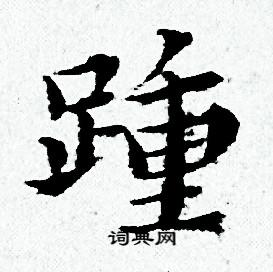 踵
词典网